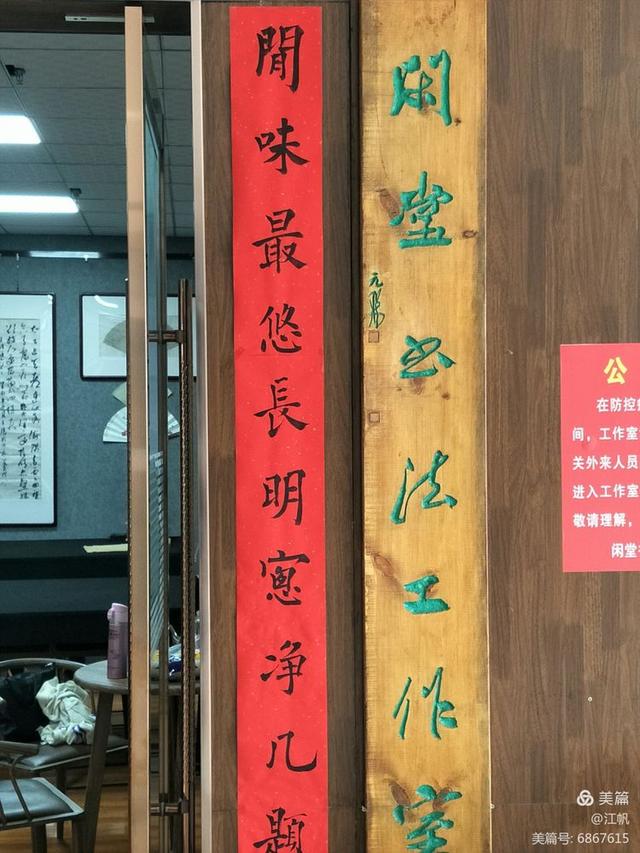 閒味最悠長明窻净几題
闲堂书法工作室
元
公
在防控
间，工作室
关外来人员
进入工作室
敬请理解，
闲堂
美篇
@江帆
美篇号: 6867615